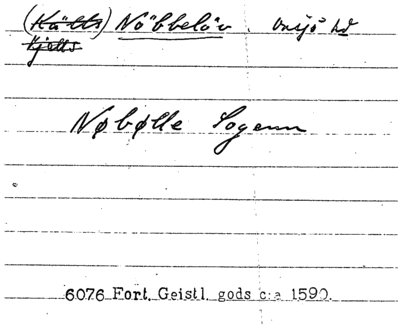 (Källs) Nöbbelöv. Onsjö hd
Kjells
Nøbølle Sogenn
6076 Fort. Geistl. gods c:a 1590.